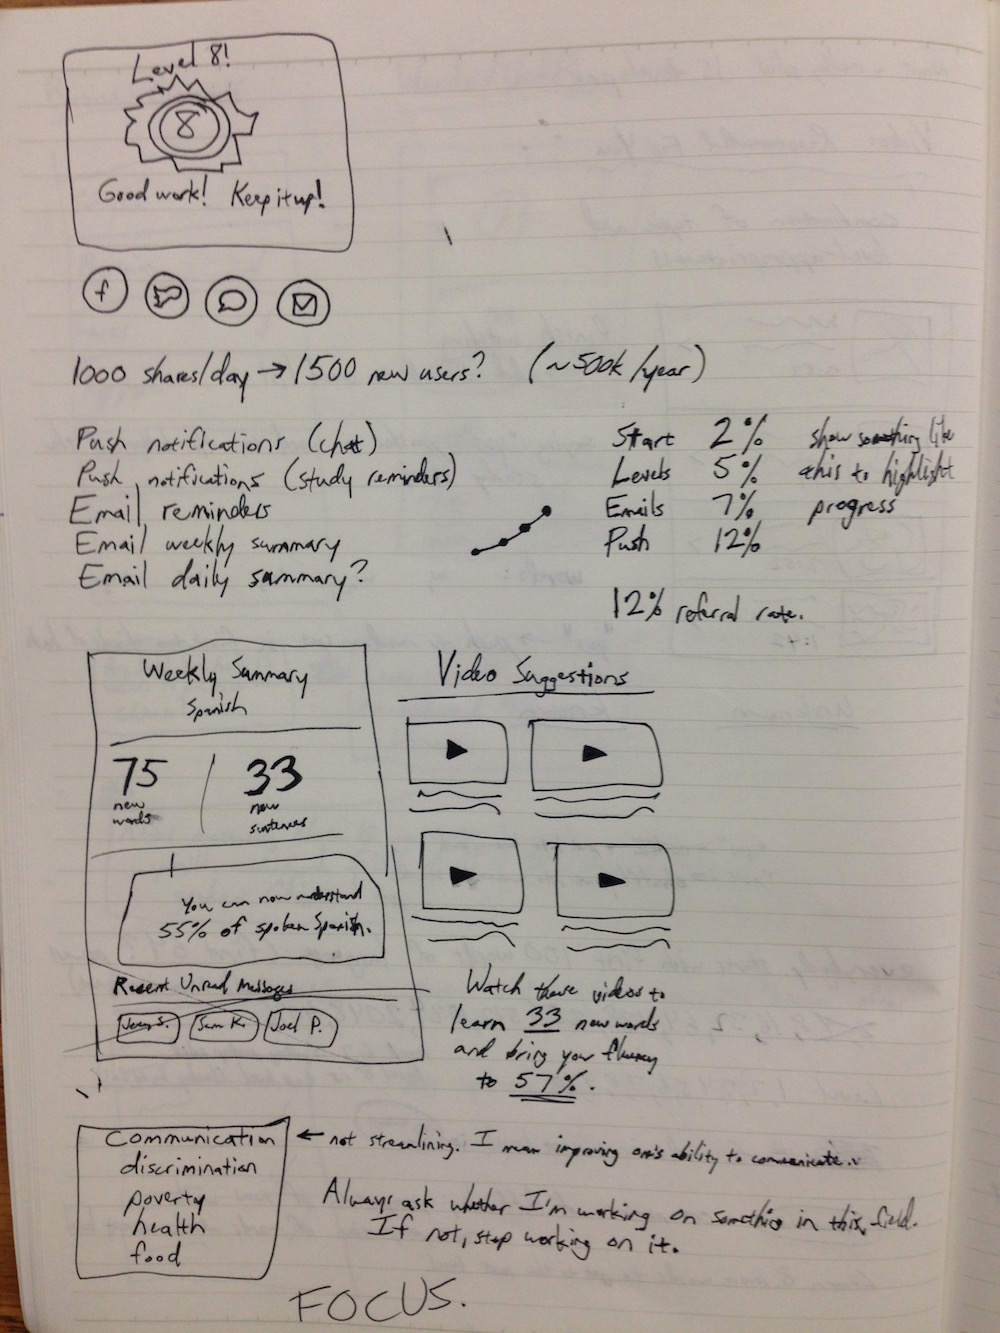 Level 8!
8
Good work! Keep it up!
f
1000 shares/day → 1500 new users? (~500k/year)
Push notifications (chat)
Push notifications (study reminders)
Email reminders
Email weekly summary
Email daily summary?
Start 2%
Levels 5%
Emails 7%
Push 12%
show something like
this to highlight
progress
12% referral rate.
Weekly Summary
Spanish
75
new
words
33
new
sentences
You can now understand
55% of spoken Spanish.
Recent Unread Messages
Jerry S.
Sam K.
Joel P.
Video Suggestions
Watch these videos to
learn 33 new words
and bring your fluency
to 57%.
Communication
discrimination
poverty
health
food
← not streamlining. I mean improving one's ability to communicate.
Always ask whether I'm working on something in this field.
If not, stop working on it.
FOCUS.